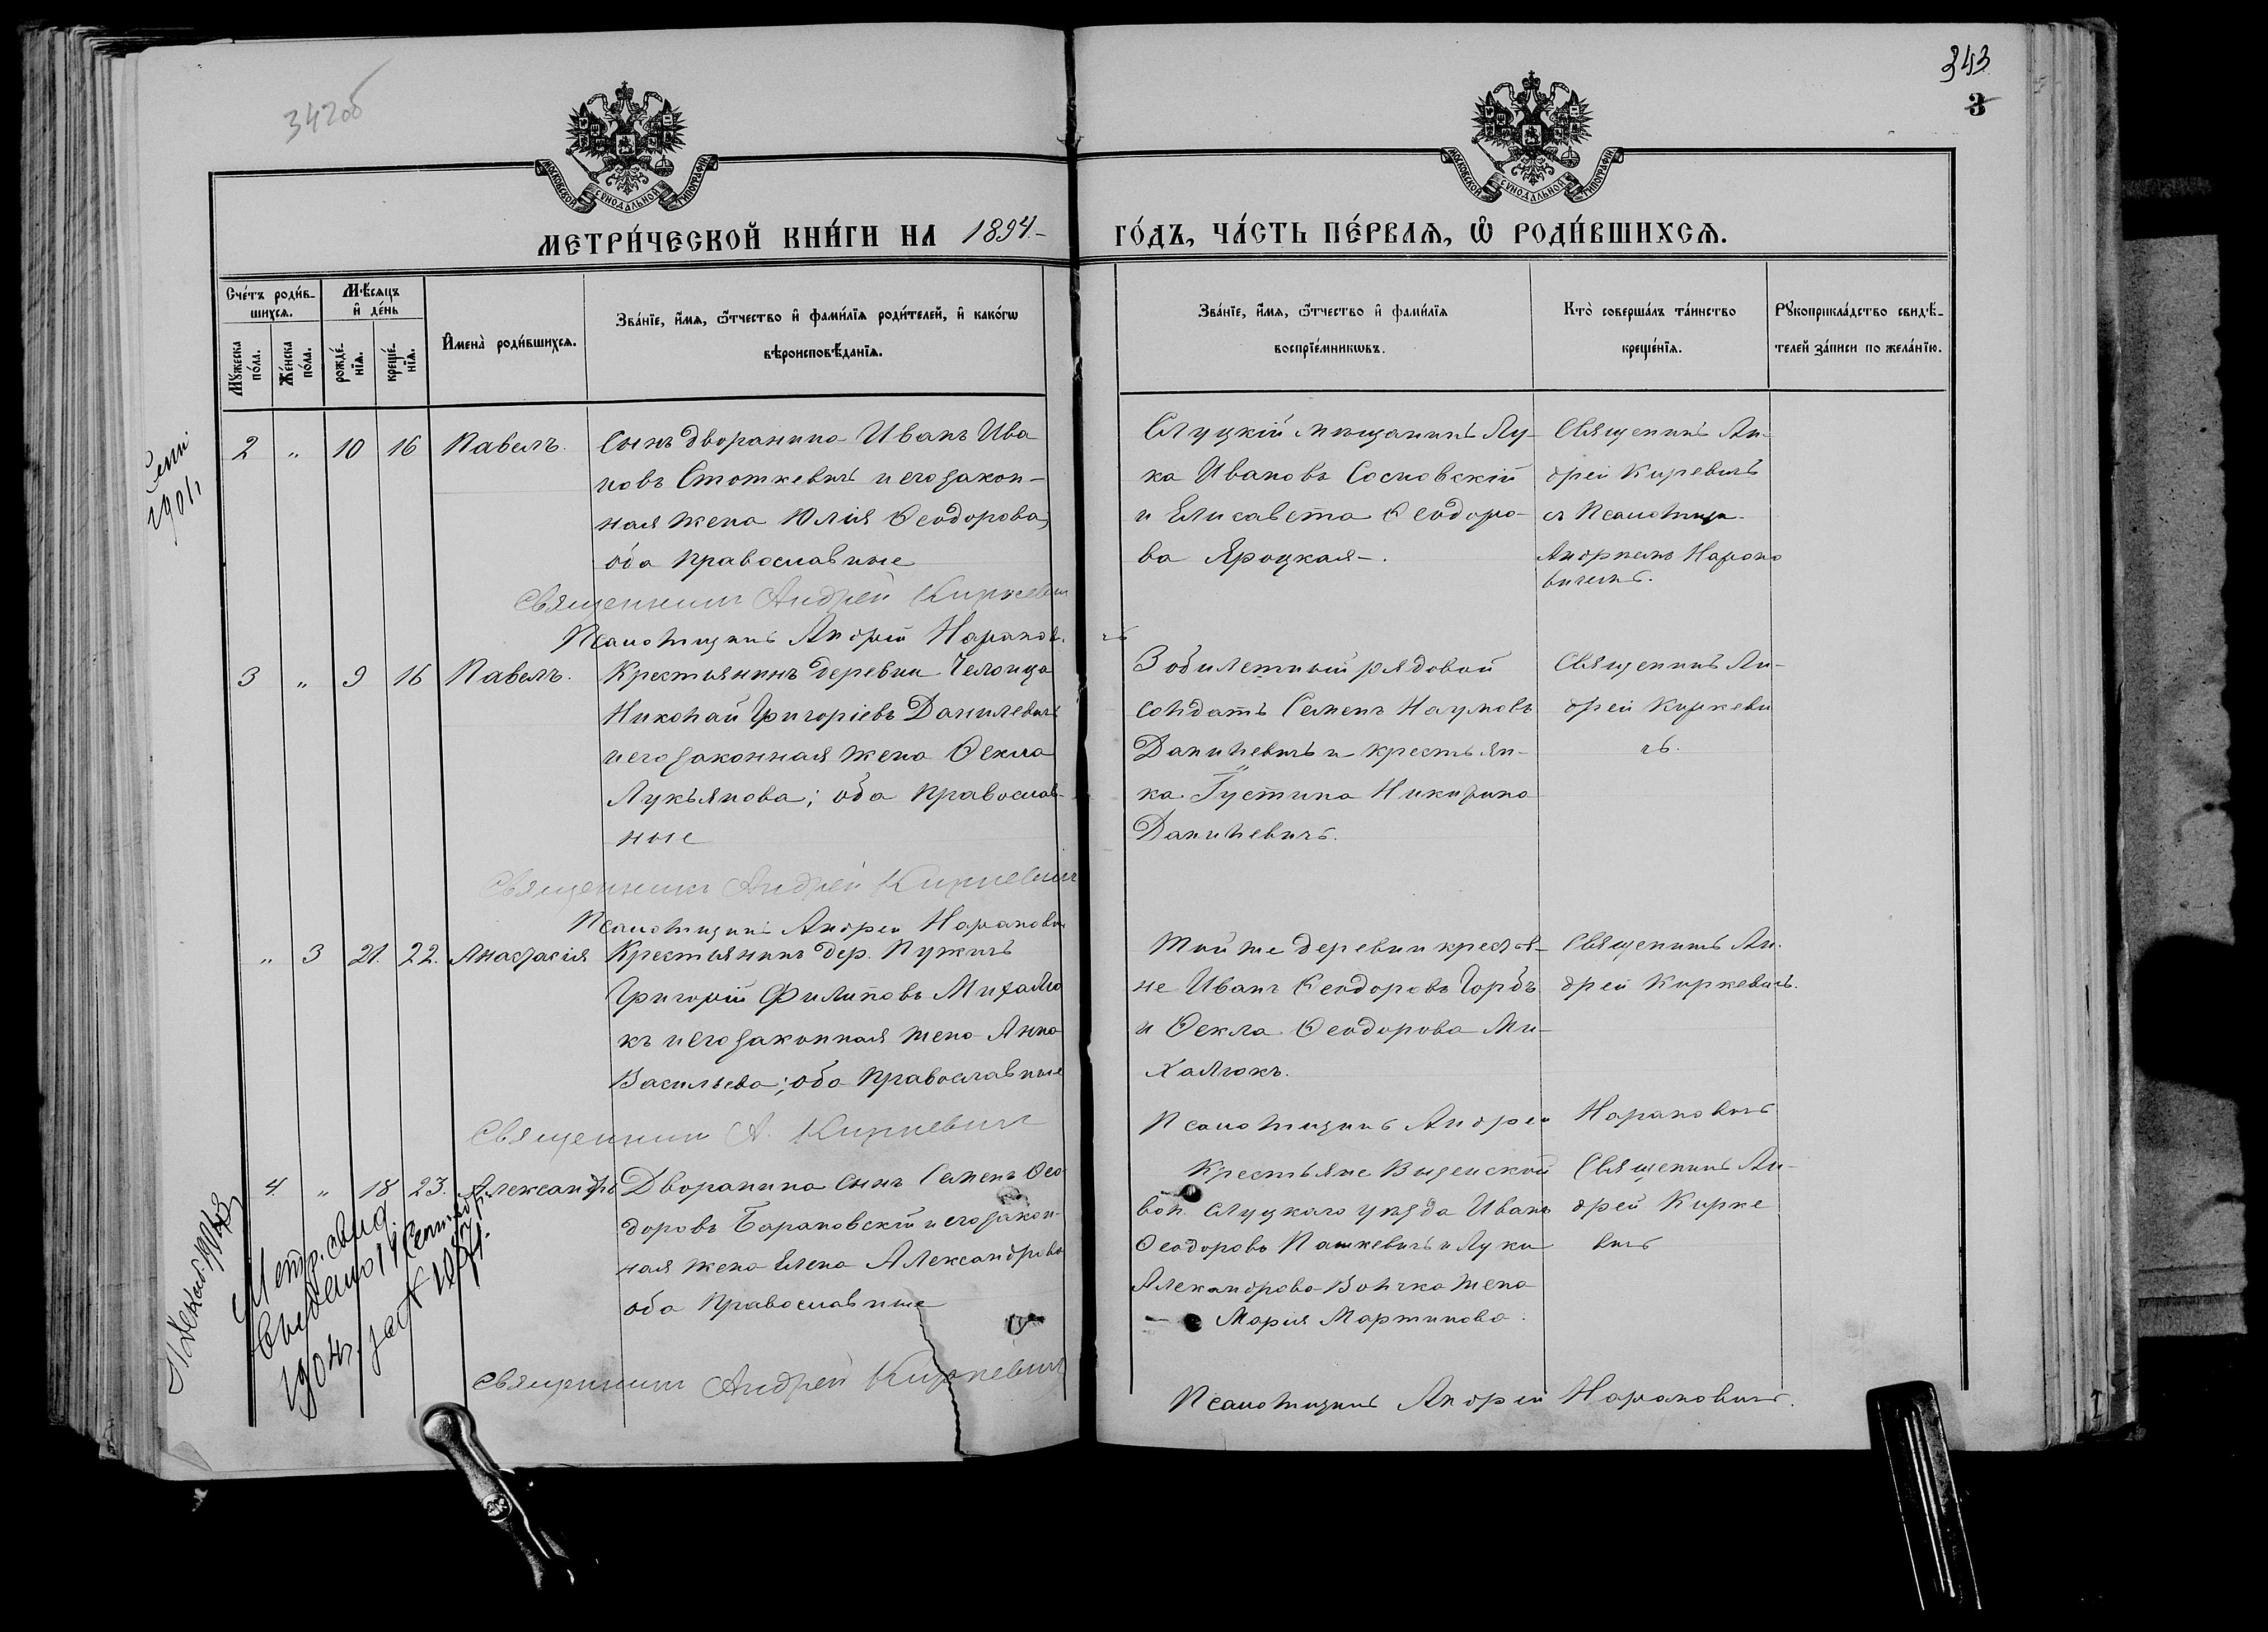 342об
343
3
МОСКОВСКОЙ СУНОДАЛЬНОЙ ТИПОГРАФІИ
МОСКОВСКОЙ СУНОДАЛЬНОЙ ТИПОГРАФІИ
МЕТРИ́ЧЕСКОЙ КНИ́ГИ НА 1894.- ГО́ДЪ, ЧА́СТЬ ПЕ́РВАѦ, Ѡ҆ РОДИ́ВШИХСѦ.
Сче́тъ роди́в-
шихсѧ.
Мꙋ́жеска по́ла.
Же́нска по́ла.
Мѣ́сѧцъ и҆ де́нь
рожде́-нїѧ.
креще́-нїѧ.
И҆мена̀ роди́вшихсѧ.
Зва́нїе, и҆́мѧ, ѻ҆́тчество и҆ фами́лїѧ роди́телей, и҆ како́гѡ
вѣроисповѣ́данїѧ.
Зва́нїе, и҆́мѧ, ѻ҆́тчество и҆ фами́лїѧ
воспрїе́мникѡвъ.
Кто̀ соверша́лъ та́инство
креще́нїѧ.
Рꙋкоприкла́дство свидѣ́-
телей за́писи по жела́нїю.
2 " 10 16 Павелъ.
Сынъ дворянина Иванъ Ива
новъ Стоткевичъ и его закон-
ная жена Юлія Ѳеодорова,
оба православные
Священникъ Андрей Киркевич
Псаломщикъ Андрей Наранов.
чъ
Слуцкій мѣщанинъ Лу-
ка Ивановъ Сосновскій
и Елисавета Ѳеодоро-
ва Яроцкая-.
Священникъ Ан-
дрей Киркевичъ
съ Псаломщи-
Андреемъ Нарано
вичемъ.
3 " 9 16 Павелъ.
Крестьянинъ деревни
Николай Григоріевъ Данилевичъ
и его законная жена Ѳекла
Лукьянова; оба православ-
ные
Священникъ Андрей Киркевичъ
Псаломщикъ Андрей Наранович
рядовой
солдатъ Семенъ Наумовъ
Данилевичъ и крестьян-
ка Іустина
Данилевичъ.
Священникъ Ан-
дрей Киркеви
чъ.
" 3 21. 22. Анастасія
Крестьянинъ дер. Пужичъ
Григорій Филиповъ Михалю
къ и его законная жена Анна
Васильева; оба православные
Священникъ А. Киркевичъ
Той же деревни крестья-
не Иванъ Ѳеодоровъ Горбъ
и Ѳекла Ѳеодорова Ми-
халюкъ.
Священникъ Ан.
дрей Киркевичъ.
Псаломщикъ Андрей Нарановичъ
4. " 18 23. Александръ
Дворянина сынъ Семенъ Ѳео
доровъ Барановскій и его закон-
ная жена Елена Александрова
оба православные
Священникъ Андрей Киркевичъ
Крестьяне Вызенской
вол. Слуцкаго уѣзда Иванъ
Ѳеодоровъ Пашкевичъ и Луки
Александрова Волчка жена
Марія Мартинова.
Священникъ Ан-
дрей Кирке
вичъ
Псаломщикъ Андрей Нарановичъ.
Метр. свид.
1904г.